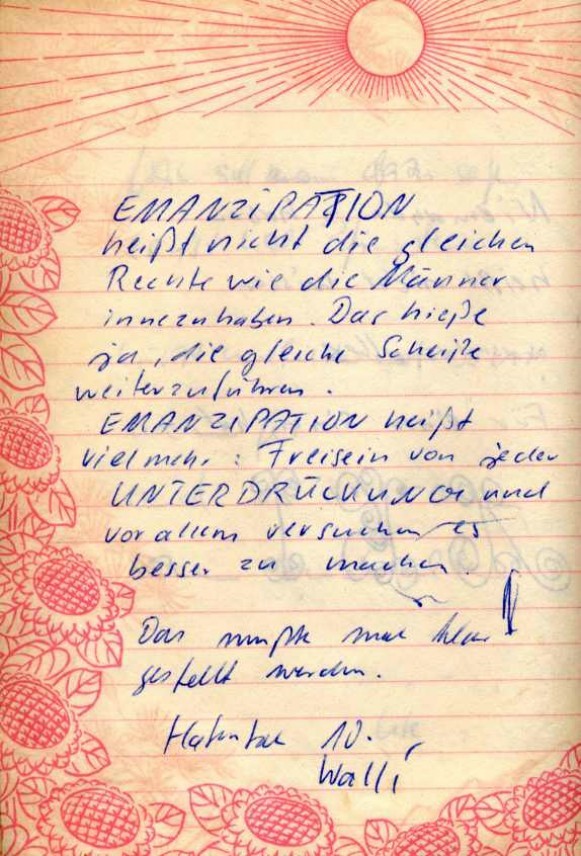 EMANZIPATION
heißt nicht die gleichen
Rechte wie die Männer
innezuhaben. Das hieße
ja, die gleiche Scheiße
weiterzuführen.
EMANZIPATION heißt
vielmehr: Freisein von jeder
UNTERDRÜCKUNG und
vor allem versuchen es
besser zu machen.!
Das mußte mal klar
gestellt werden.
10.
Walli